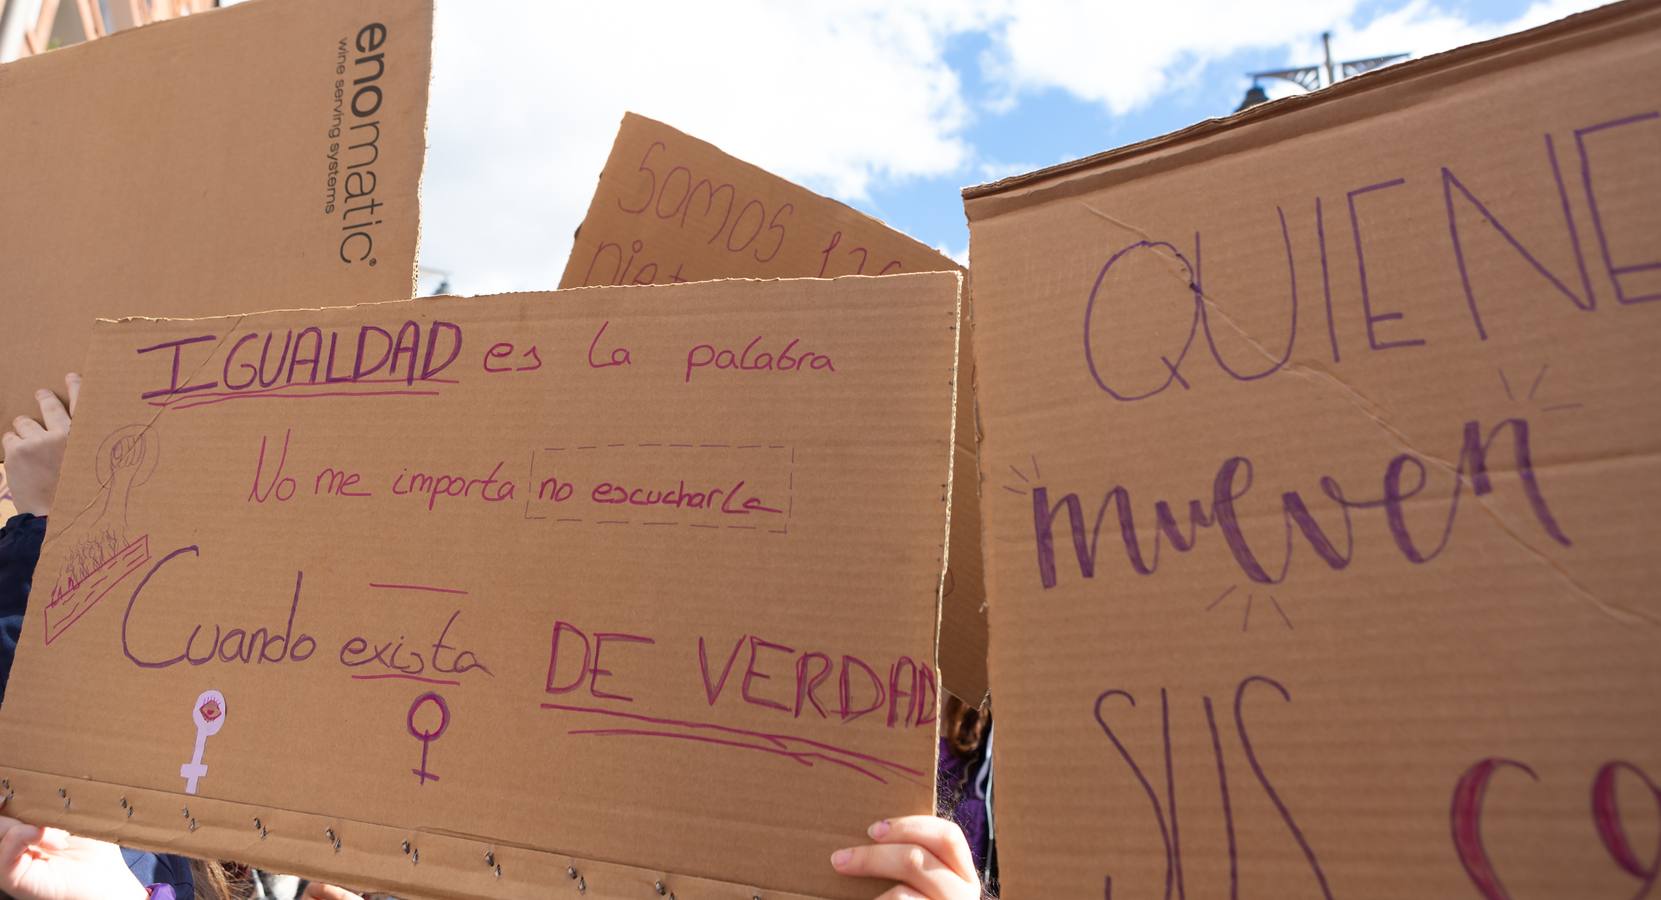 enomatic®
wine serving systems
SOMOS
IGUALDAD es la palabra
No me importa no escucharla
Cuando exista DE VERDAD
QUIENE
mueven
SUS